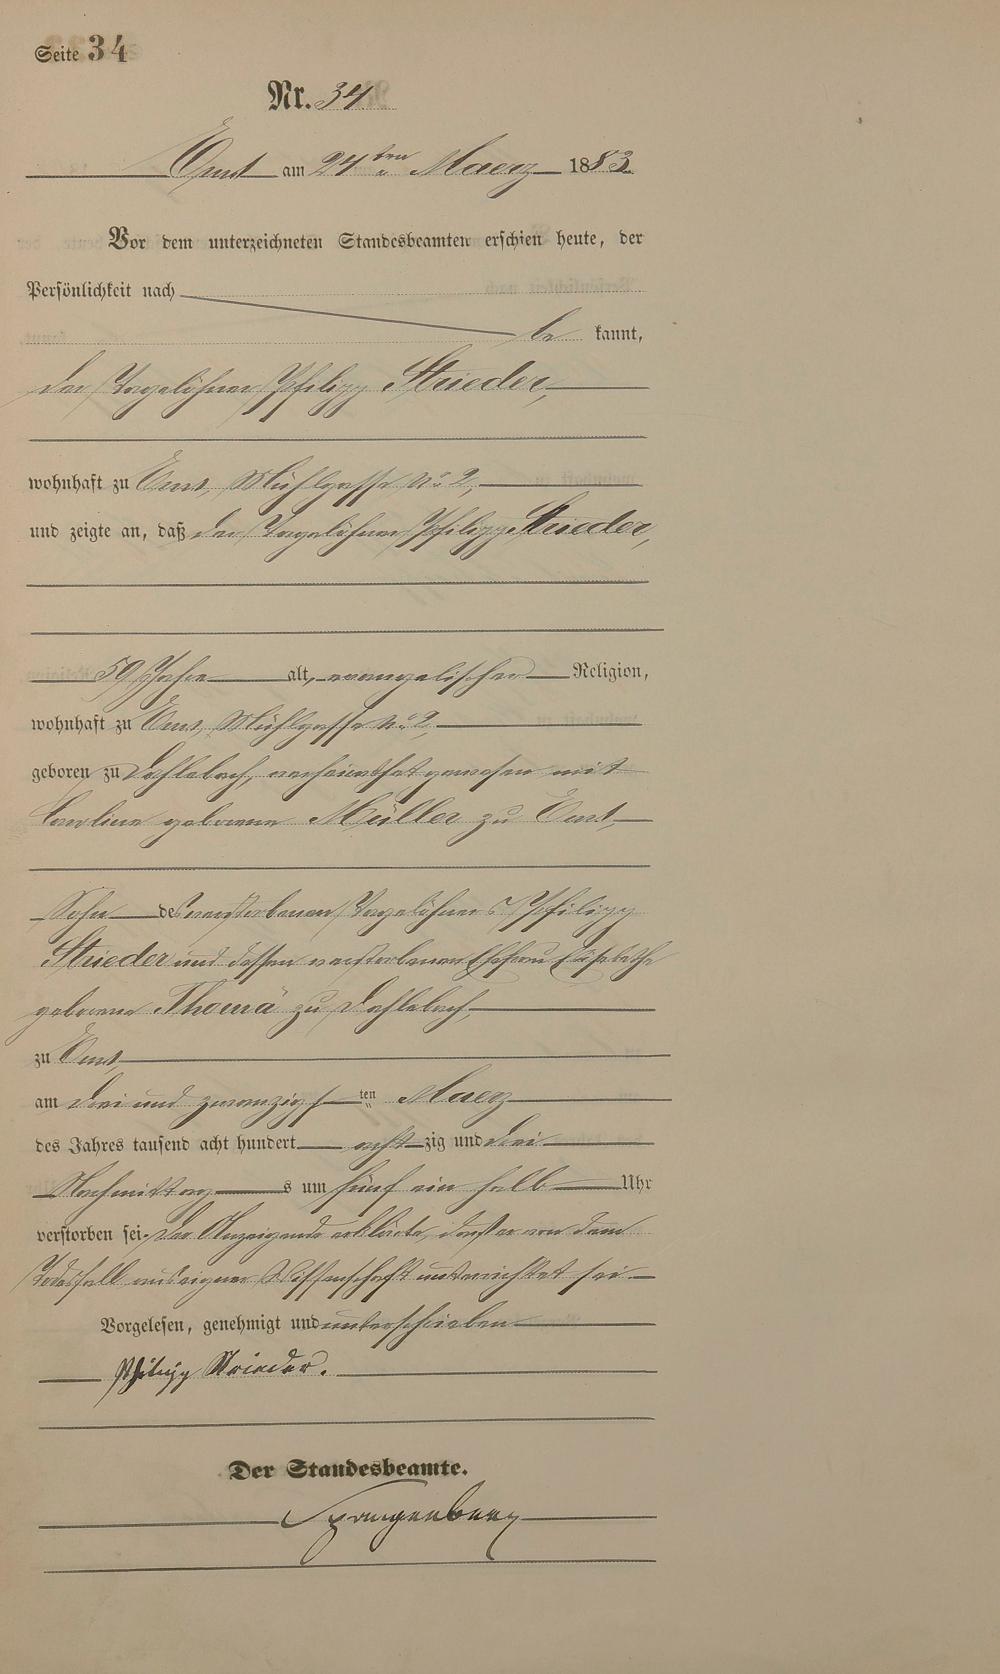 Seite 34
Nr. 34
Ems am 24ten Maerz 1883
Vor dem unterzeichneten Standesbeamten erschien heute, der
Persönlichkeit nach
be kannt,
der Tagelöhner Philipp Strieder,
wohnhaft zu Ems, Mühlgasse No 2,
und zeigte an, daß der Tagelöhner Philipp Strieder,
59 Jahre alt, evangelischer Religion,
wohnhaft zu Ems, Mühlgasse No 2,
geboren zu verheirathet gewesen mit
Caroline geborene Müller zu Ems,
Sohn des verstorbenen Tagelöhners Philipp
Strieder und dessen verstorbenen Ehefrau Elisabethe
geborene Thomä zu
zu Ems,
am drei und zwanzigsten Maerz
des Jahres tausend acht hundert acht zig und drei
Nachmittags um fünf ein halb Uhr
verstorben sei. Der Anzeigende erklärte, daß er von dem
Todesfall aus eigener Wissenschaft unterrichtet sei
Vorgelesen, genehmigt und unterschrieben
Philipp Strieder.
Der Standesbeamte.
Spangenberg